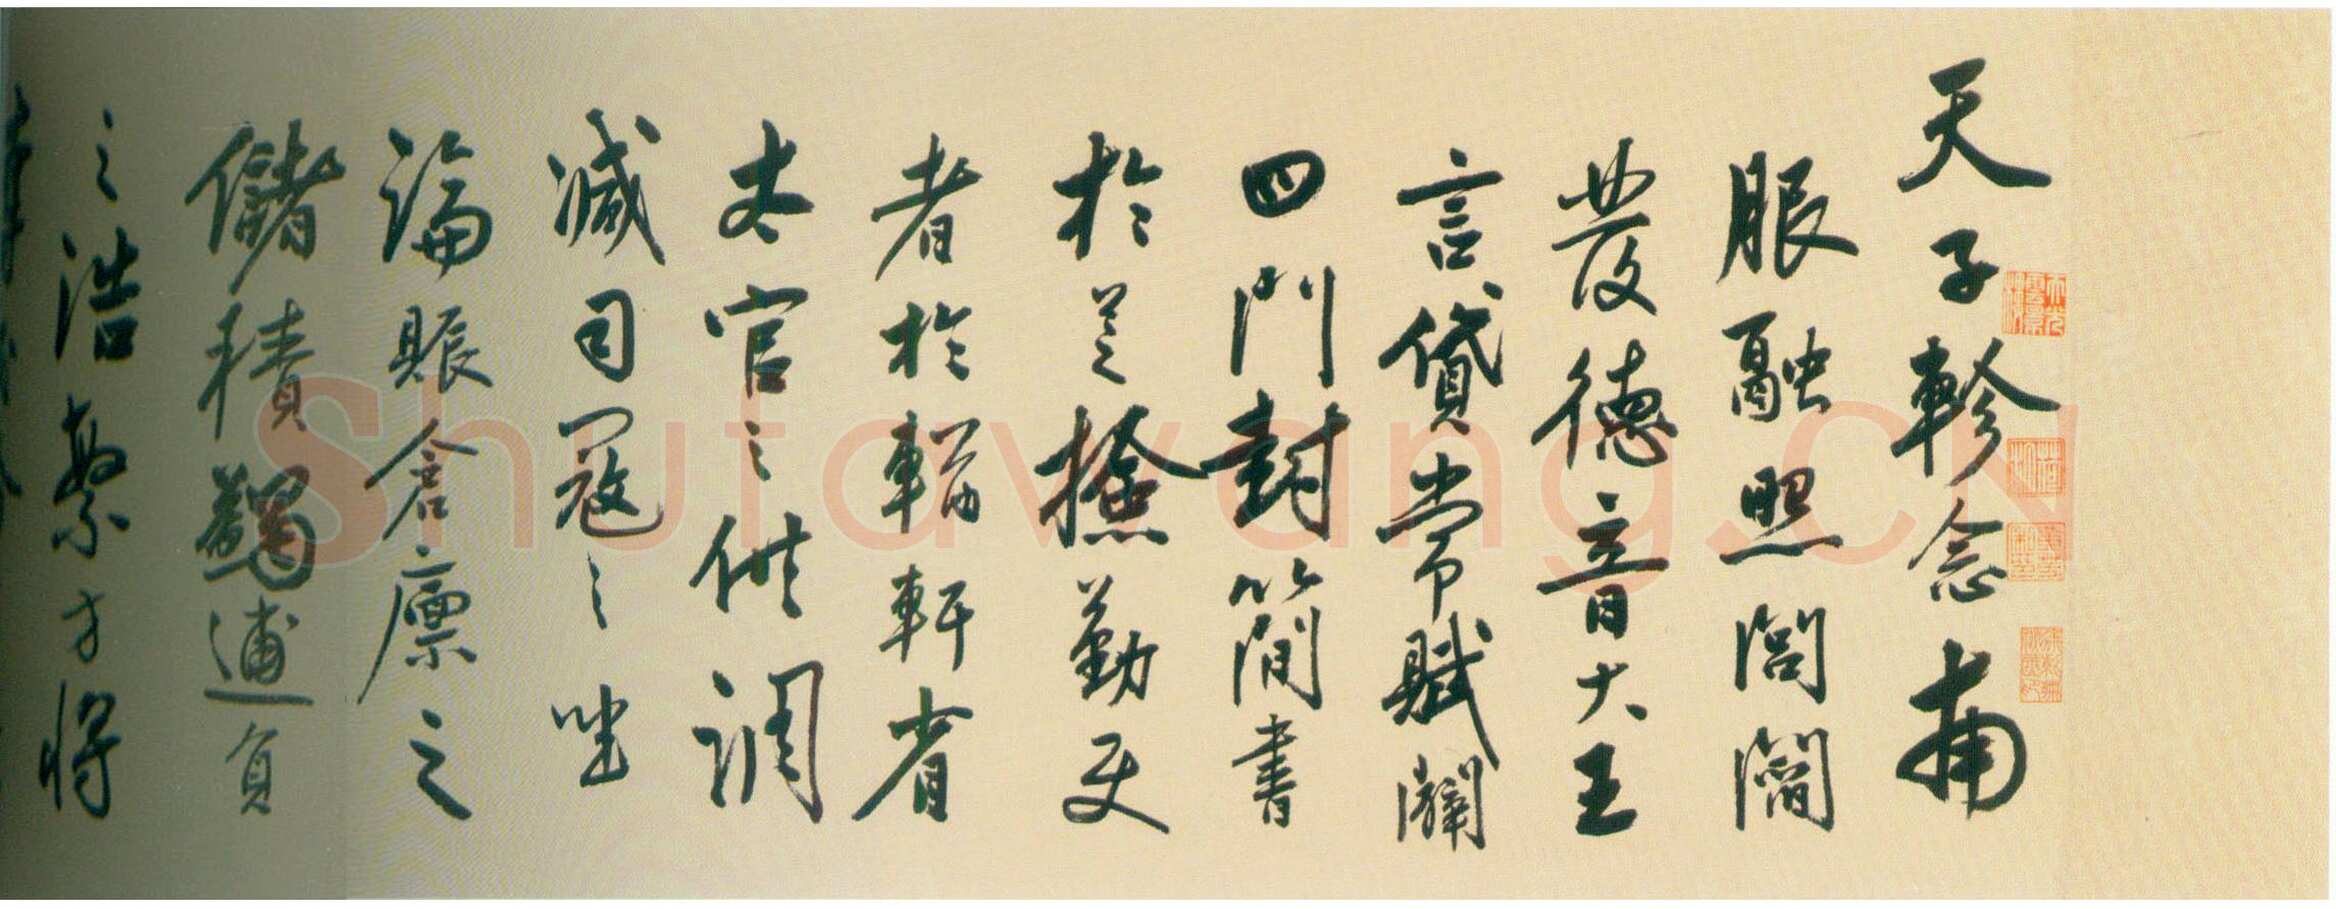 天子軫念甫
服融照閻簷
發德音大王
言貸常賦闢
四門封簡書
於是撿勤吏
者於輶軒者
太官之供調
減司寇之
論賑倉廩之
儲積蠲逋負
之浩繁方將
Shufawang.CN